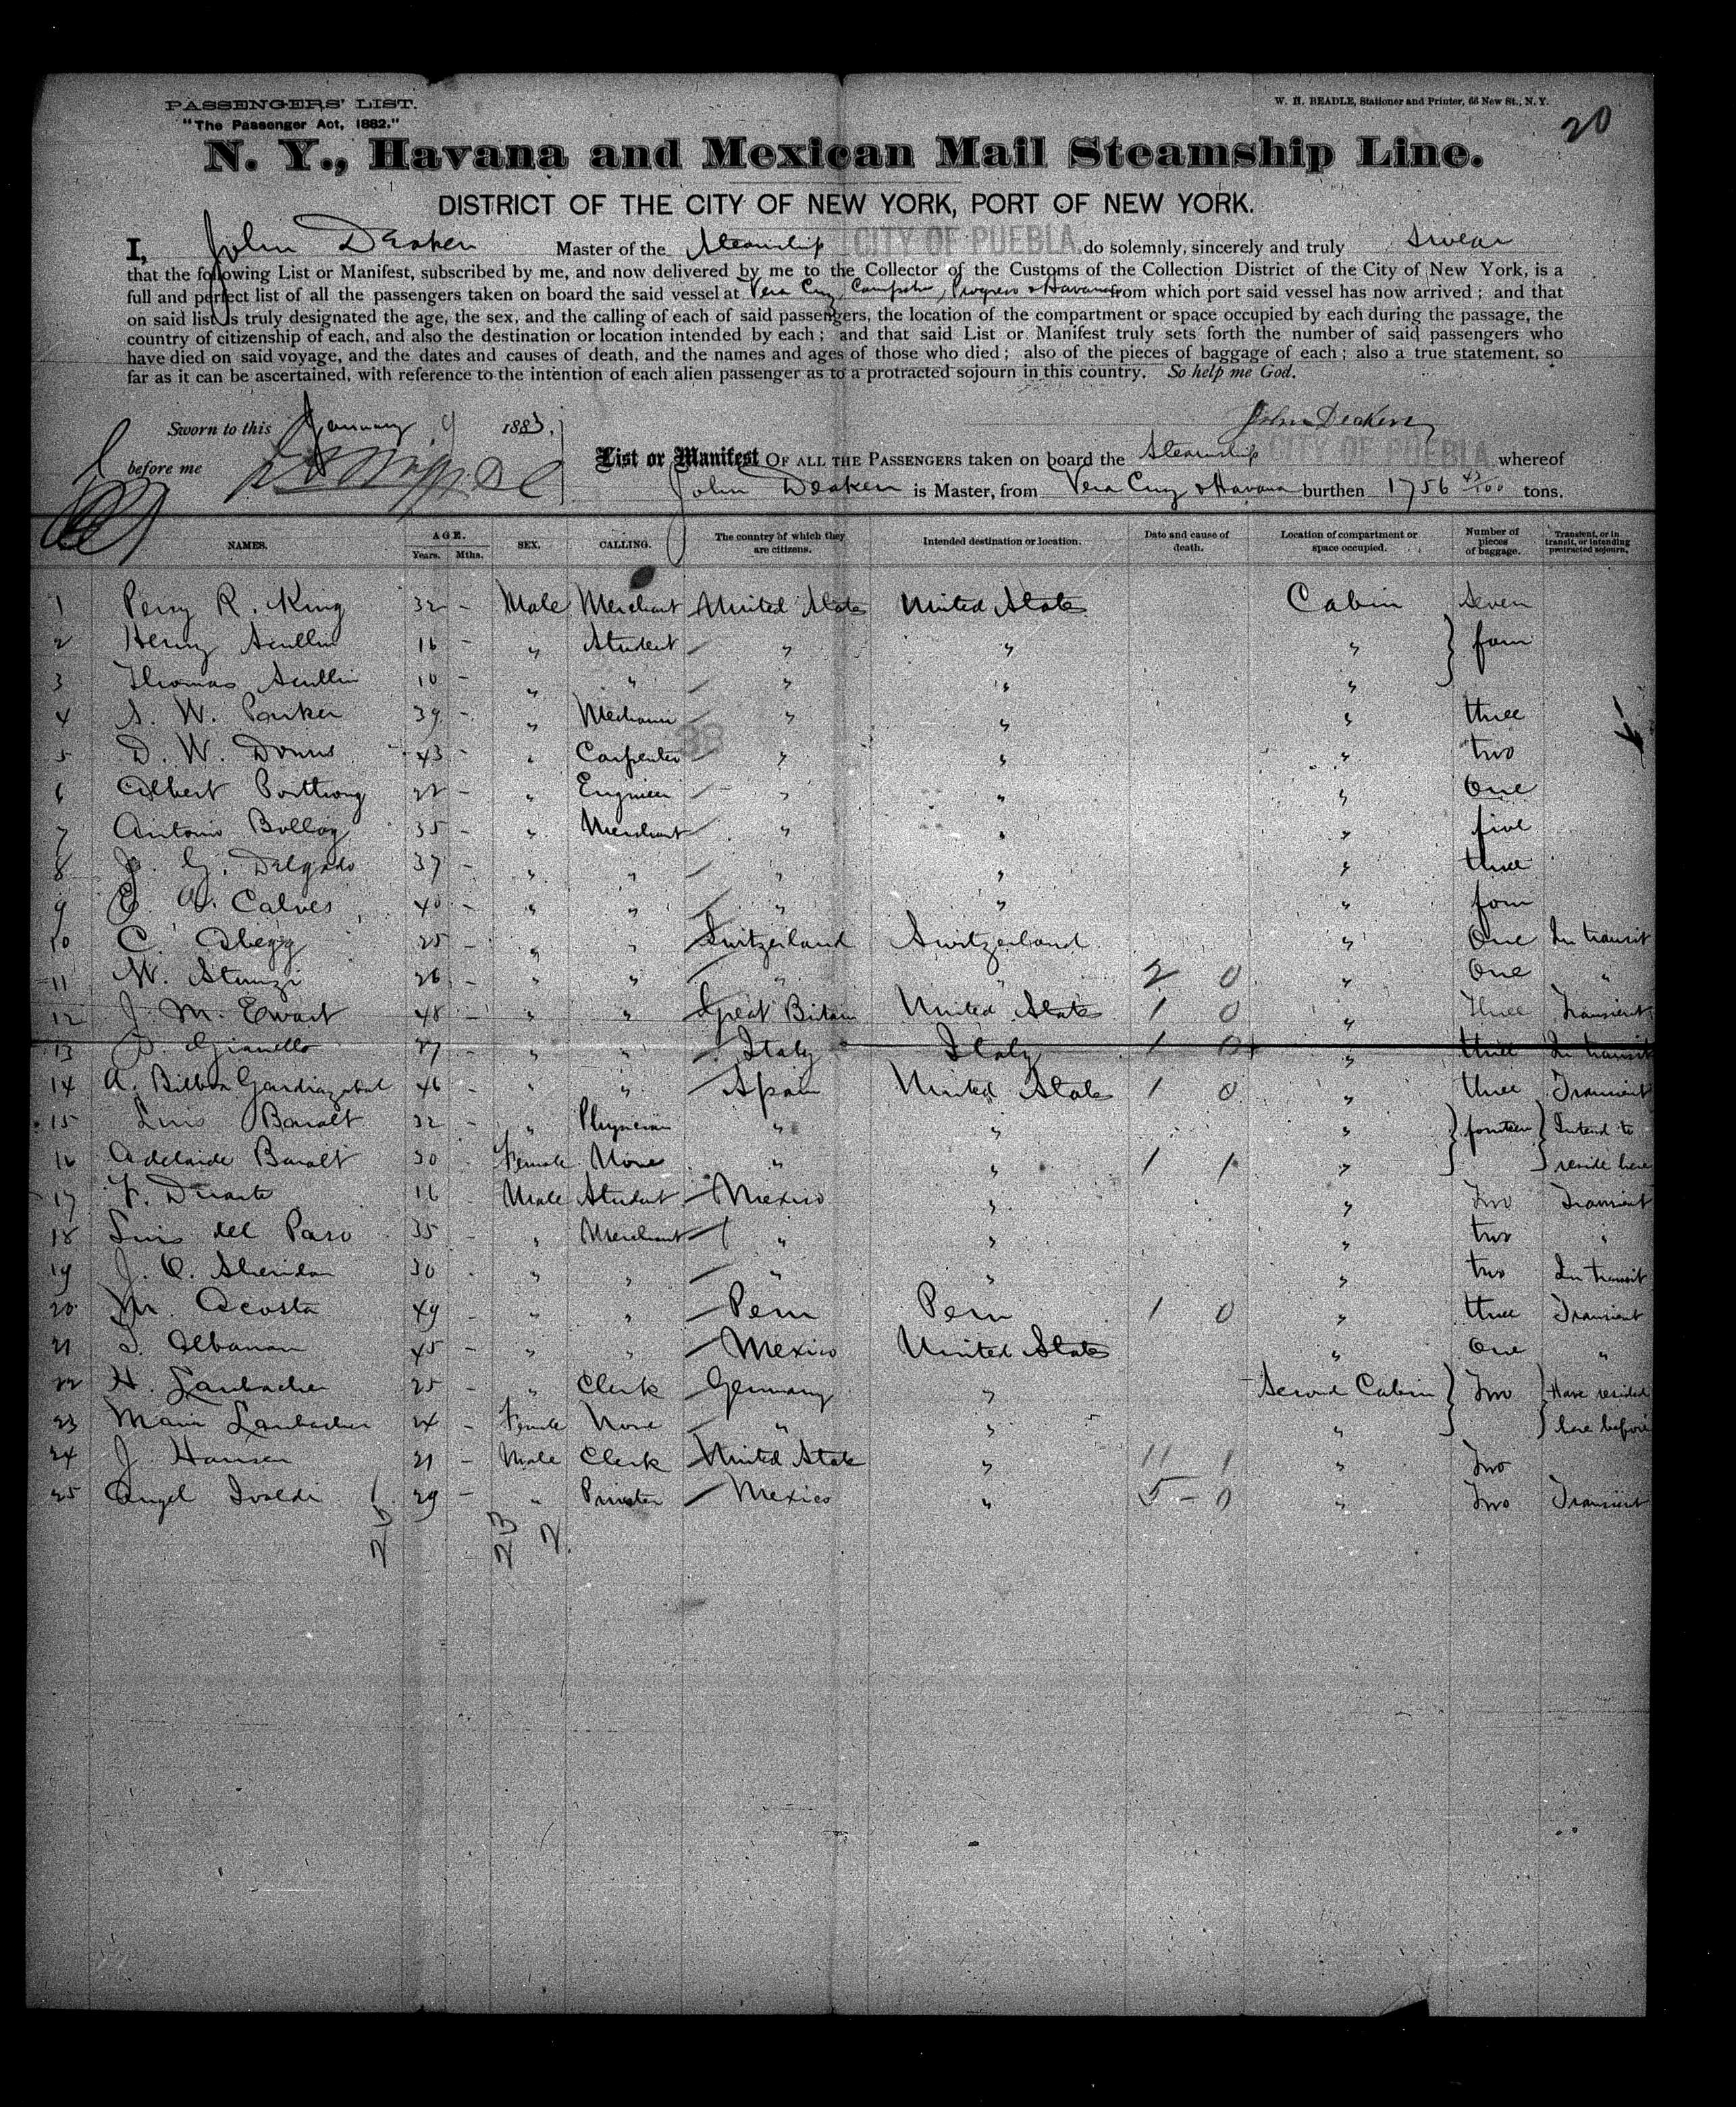 20
PASSENGERS' LIST.
"The Passenger Act, 1882."
W. H. BEADLE, Stationer and Printer, 66 New St., N. Y.
N. Y., Havana and Mexican Mail Steamship Line.
DISTRICT OF THE CITY OF NEW YORK, PORT OF NEW YORK.
I, John Deaken Master of the Steamship CITY OF PUEBLA do solemnly, sincerely and truly swear
that the following List or Manifest, subscribed by me, and now delivered by me to the Collector of the Customs of the Collection District of the City of New York, is a
full and perfect list of all the passengers taken on board the said vessel at Vera Cruz, Campeche, Progreso & Havana from which port said vessel has now arrived; and that
on said list is truly designated the age, the sex, and the calling of each of said passengers, the location of the compartment or space occupied by each during the passage, the
country of citizenship of each, and also the destination or location intended by each; and that said List or Manifest truly sets forth the number of said passengers who
have died on said voyage, and the dates and causes of death, and the names and ages of those who died; also of the pieces of baggage of each; also a true statement, so
far as it can be ascertained, with reference to the intention of each alien passenger as to a protracted sojourn in this country. So help me God.
Sworn to this January 9 1883,
John Deaken
before me
List or Manifest OF ALL THE PASSENGERS taken on board the Steamship CITY OF PUEBLA whereof
John Deaken is Master, from Vera Cruz & Havana burthen 1756 tons.
NAMES. AGE. Years. Mths. SEX. CALLING. The country of which they are citizens. Intended destination or location. Date and cause of death. Location of compartment or space occupied. Number of pieces of baggage. Transient, or in transit, or intending protracted sojourn.
1 Perry R. King 32 - Male Merchant United States United States Cabin Seven
2 Henry Scullin 16 - " Student " " " four
3 Thomas Scullin 10 - " " " " "
4 S. W. Parker 39 - " Mechanic " " " three
38
5 D. W. 43 - " Carpenter " " " two
6 Albert 22 - " Engineer " " " One
7 Antonio 35 - " Merchant " " " five
8 J. G. Delgado 37 - " " " " " three
9 E. A. Calves 40 - " " " " " four
10 C. Abegg 25 - " " Switzerland Switzerland " One In transit
11 W. Stunzi 26 - " " " " 2 0 " One "
12 J. M. Ewart 48 - " " Great Britain United States 1 0 " Three Transient
13 Gianello 27 - " " Italy Italy 1 0 " three In transit
14 A. Bilbao Gardiazabal 46 - " " Spain United States 1 0 " three Transient
15 Luis Baralt 32 - " Physician " " " fourteen Intend to
16 Adelaide Baralt 30 - Female None " " 1 1 " reside here
17 F. Duarte 16 - Male Student Mexico " " Two Transient
18 Luis del Paso 35 - " Merchant " " " two "
19 J. O. Sheridan 30 - " " " " " two In transit
20 M. Acosta 49 - " " Peru Peru 1 0 " three Transient
21 Albanan 45 - " " Mexico United States " One "
22 H. Laubacher 25 - " Clerk Germany " Second Cabin Two Have resided
23 Maria Laubacher 24 - Female None " " " here before
24 J. Hansen 21 - Male Clerk United States " 11 1 " Two
25 Angel Ivaldi 29 - " Mexico " 5 - 0 " Two Transient
25 23 2